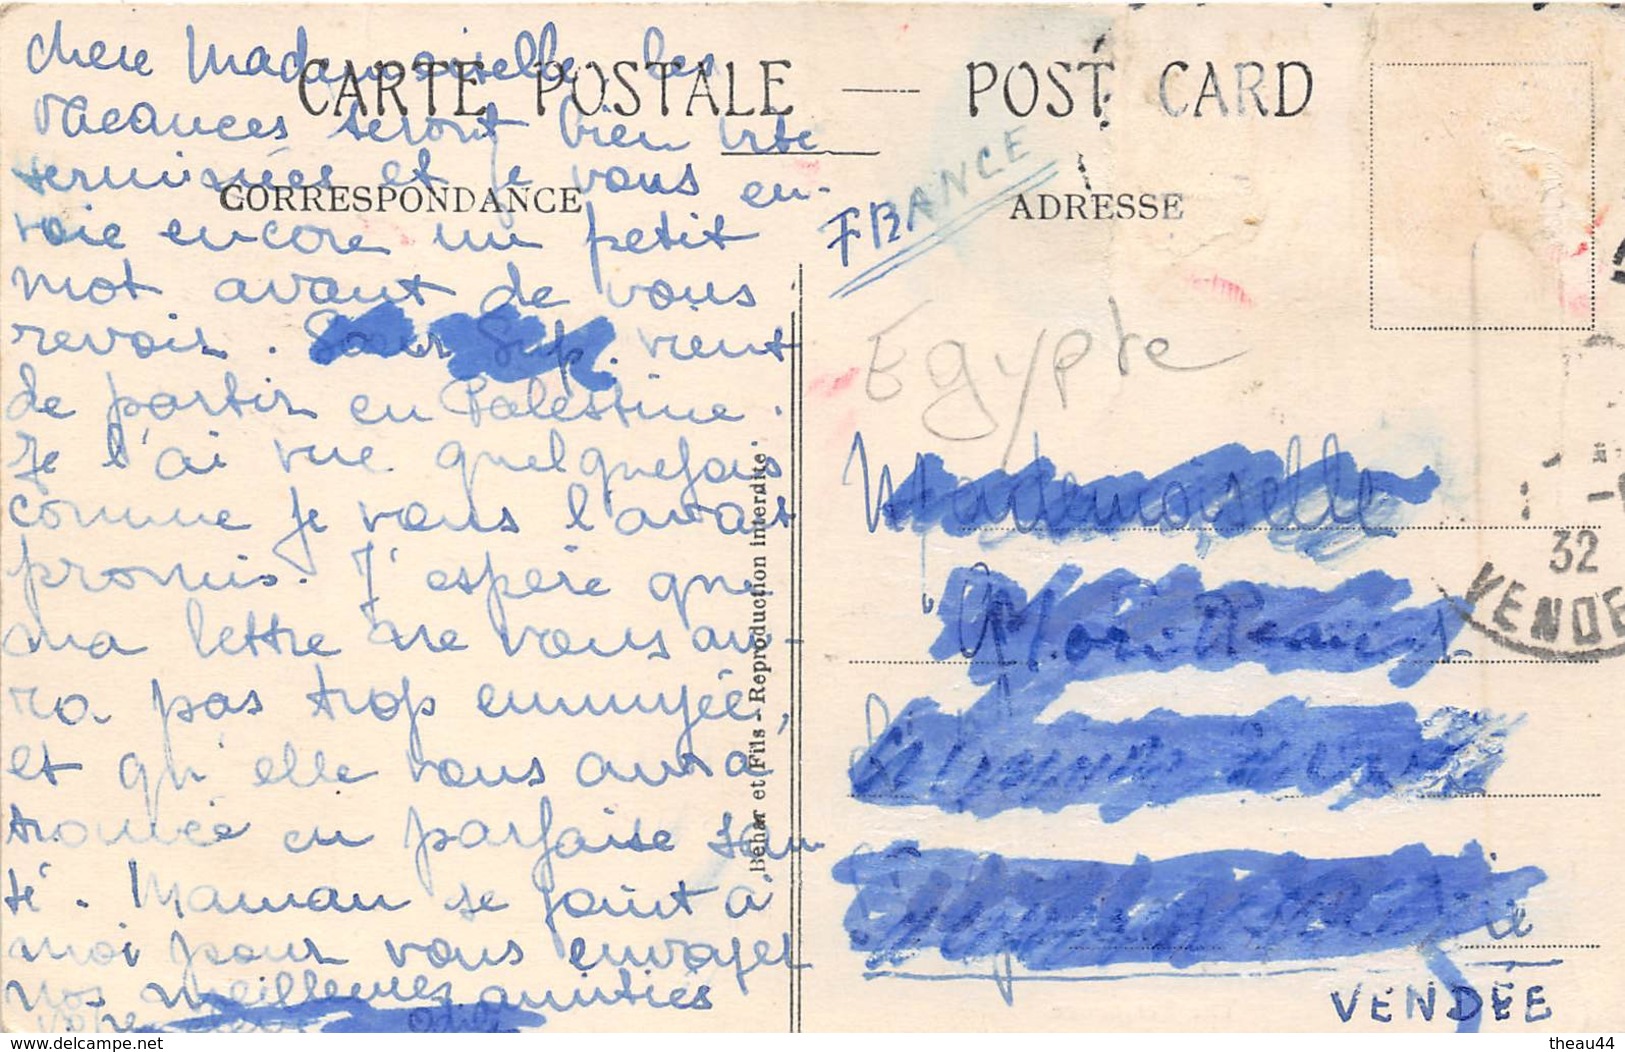 CARTE POSTALE — POST CARD
CORRESPONDANCE
ADRESSE
chere Mademoiselle, les
vacances seront bien vite
terminées et je vous en-
voie encore un petit
mot avant de vous
revoir. Soeur Sup. vient
de partir en Palestine.
Je l'ai vue quelquefois
comme je vous l'avais
promis. J'espère que
ma lettre ne vous au-
ra pas trop ennuyée,
et qu'elle vous aura
trouvée en parfaite san-
té. Maman se joint à
moi pour vous envoyer
nos meilleures amitiés
Behar et Fils - Reproduction interdite
FRANCE
Egypte
Mademoiselle
VENDÉE
32
VENDE
www.delcampe.net
theau44